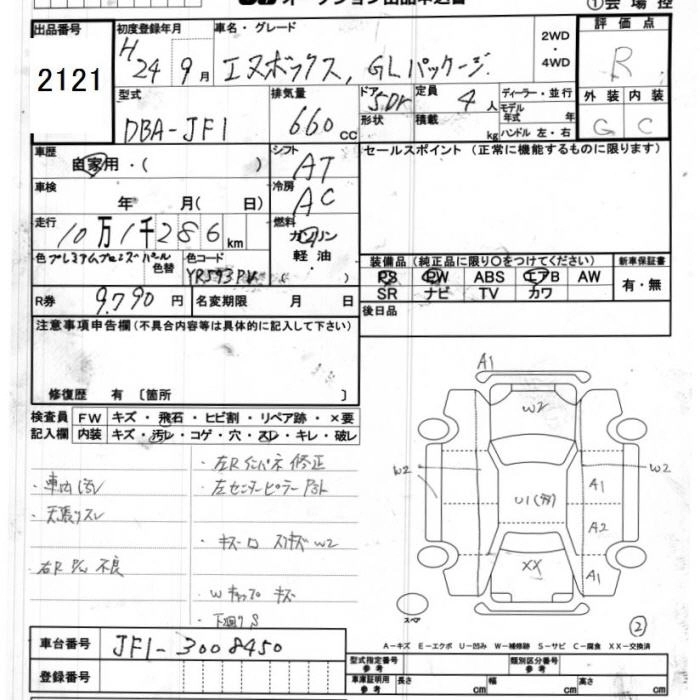 オークション出品申込書
①会場控
出品番号 2121
初度登録年月 H 24 9月
車名・グレード エヌボックス, GLパッケージ.
2WD・4WD
評価点 R
型式 DBA-JF1
排気量 660 cc
ドア 形状 5DR
定員 4人
積載 kg
ディーラー・並行
モデル年式 年式
ハンドル 左・右
外装 G
内装 C
車歴 自家用・( )
シフト AT
セールスポイント (正常に機能するものに限ります)
車検 年 月( 日)
冷房 AC
走行 10万1千286km
燃料 ガソリン 軽油・
色 プレミアムブロンズパール 色替
色コード YR593P
装備品(純正品に限り〇をつけてください)
新車保証書 有・無
PS PW ABS エアB AW
SR ナビ TV カワ
R券 9,790円
名変期限 月 日
後日品
注意事項申告欄(不具合内容等は具体的に記入して下さい)
修復歴 有 〔箇所 〕
検査員記入欄
FW キズ・飛石・ヒビ割・リペア跡・×要
内装 キズ・汚レ・コゲ・穴・スレ・キレ・破レ
・車内汚レ
・天張りスレ
右R P/W 不良
・左Rインパネ修正
・左センターピラー
・キズ ヘコ スリキズ W2
・Wキャップ キズ
・下廻りS
A1
W2
W2 W2
U1
A1
A2
XX
A1
スペア
②
A-キズ E-エクボ U-凹み W-補修跡 S-サビ C-腐食 XX-交換済
車台番号 JF1-3008450
型式指定番号 参考
類別区分番号 参考
登録番号
車庫証明用 参考 長さ cm 幅 cm 高さ cm